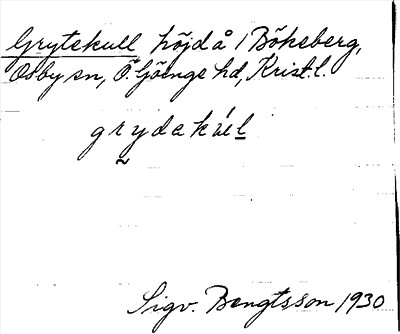 Grytekull höjd å 1 Bökeberg,
Osby sn, Ö. Göinge hd, Krist. l.
grydakúl
Sigv. Bengtsson 1930